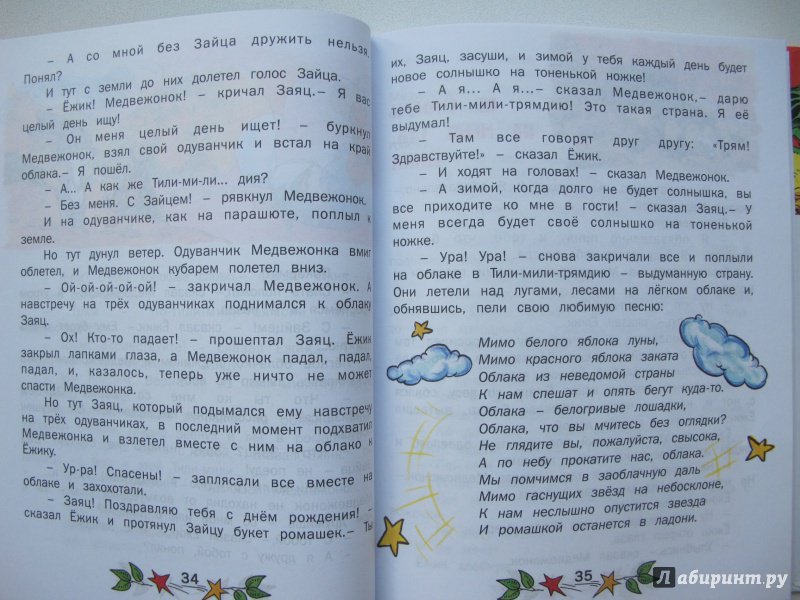 – А со мной без Зайца дружить нельзя.
Понял?
И тут с земли до них долетел голос Зайца.
– Ёжик! Медвежонок! – кричал Заяц.– Я вас
целый день ищу!
– Он меня целый день ищет! – буркнул
Медвежонок, взял свой одуванчик и встал на край
облака.– Я пошёл.
– А... А как же Тили-ми-ли... дия?
– Без меня. С Зайцем! – рявкнул Медвежонок.
И на одуванчике, как на парашюте, поплыл к
земле.
Но тут дунул ветер. Одуванчик Медвежонка вмиг
облетел, и Медвежонок кубарем полетел вниз.
– Ой-ой-ой-ой-ой! – закричал Медвежонок. А
навстречу на трёх одуванчиках поднимался к облаку
Заяц.
– Ох! Кто-то падает! – прошептал Заяц. Ёжик
закрыл лапками глаза, а Медвежонок падал, падал,
падал, и, казалось, теперь уже ничто не может
спасти Медвежонка.
Но тут Заяц, который подымался ему навстречу
на трёх одуванчиках, в последний момент подхватил
Медвежонка и взлетел вместе с ним на облако к
Ёжику.
– Ур-ра! Спасены! – заплясали все вместе на
облаке и захохотали.
– Заяц! Поздравляю тебя с днём рождения! –
сказал Ёжик и протянул Зайцу букет ромашек.– Ты
34
их, Заяц, засуши, и зимой у тебя каждый день будет
новое солнышко на тоненькой ножке!
– А я... А я...– сказал Медвежонок,– дарю
тебе Тили-мили-трямдию! Это такая страна. Я её
выдумал!
– Там все говорят друг другу: «Трям!
Здравствуйте!» – сказал Ёжик.
– И ходят на головах! – сказал Медвежонок.
– А зимой, когда долго не будет солнышка, вы
все приходите ко мне в гости! – сказал Заяц.– У
меня всегда будет своё солнышко на тоненькой
ножке.
– Ура! Ура! – снова закричали все и поплыли
на облаке в Тили-мили-трямдию – выдуманную страну.
Они летели над лугами, лесами на лёгком облаке и,
обнявшись, пели свою любимую песню:
Мимо белого яблока луны,
Мимо красного яблока заката
Облака из неведомой страны
К нам спешат и опять бегут куда-то.
Облака – белогривые лошадки,
Облака, что вы мчитесь без оглядки?
Не глядите вы, пожалуйста, свысока,
А по небу прокатите нас, облака.
Мы помчимся в заоблачную даль
Мимо гаснущих звёзд на небосклоне,
К нам неслышно опустится звезда
И ромашкой останется в ладони.
35
Лабиринт.ру